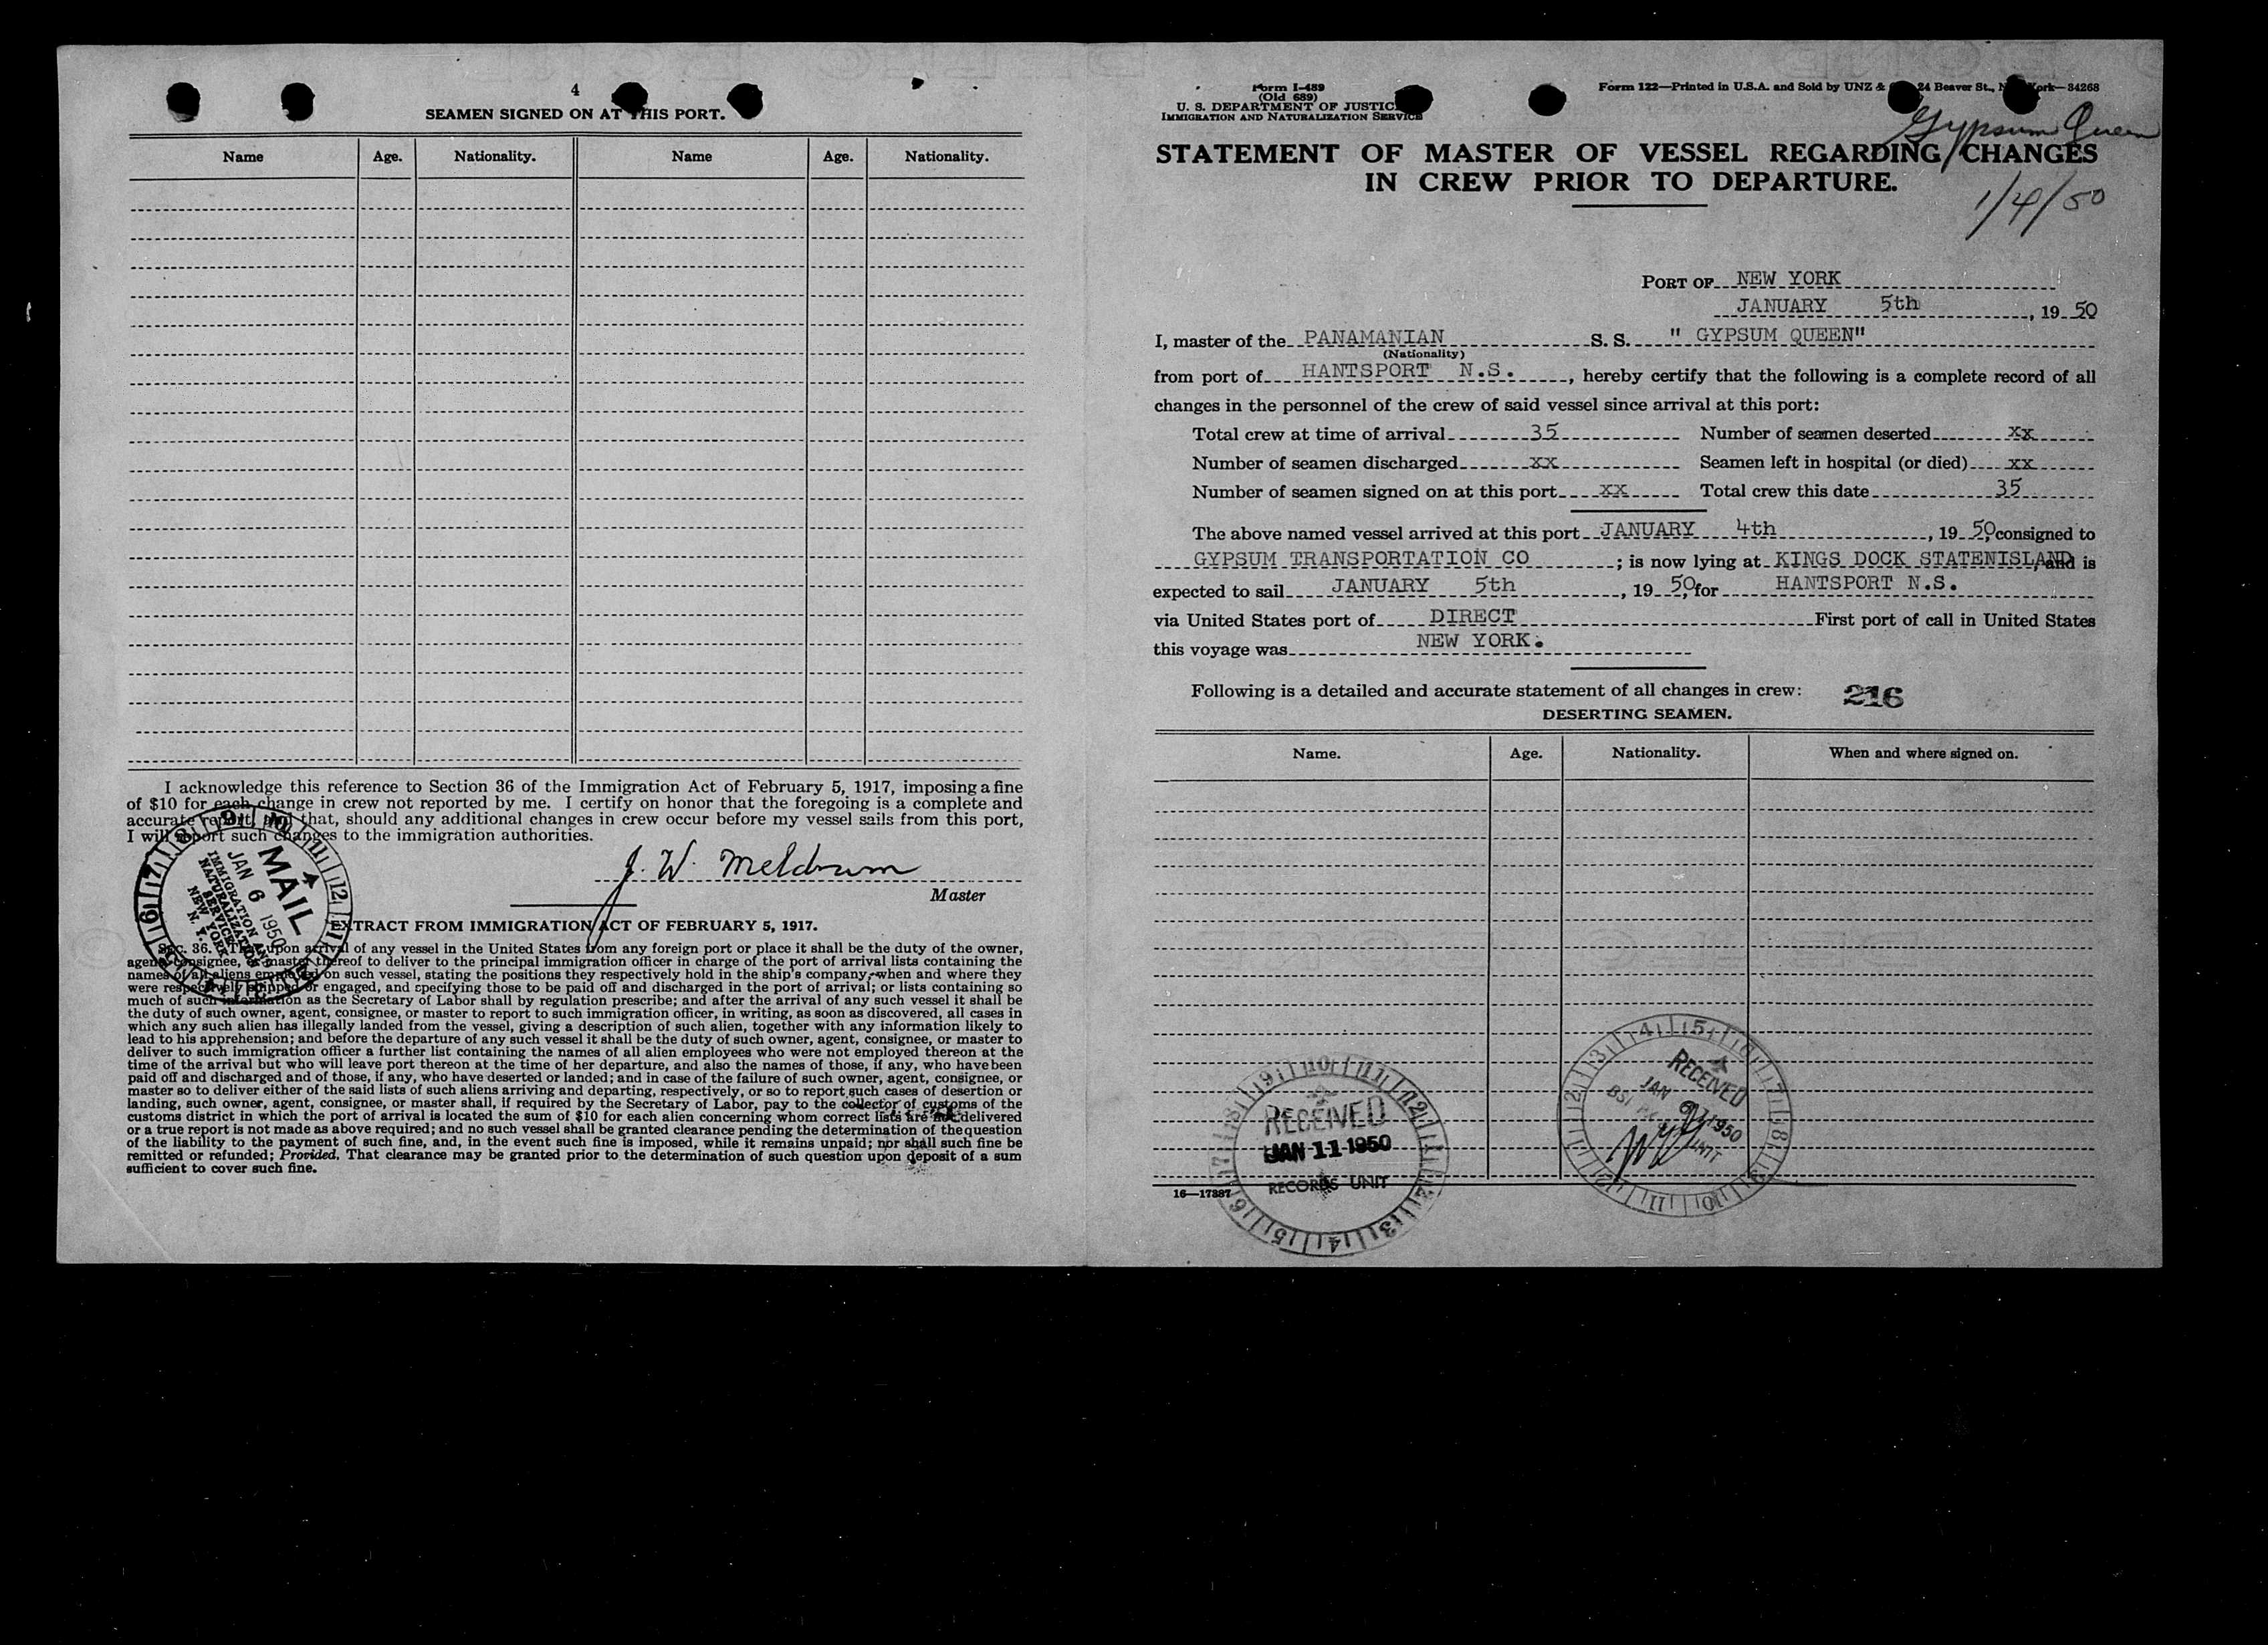 4
SEAMEN SIGNED ON AT THIS PORT.
Name Age. Nationality. Name Age. Nationality.
I acknowledge this reference to Section 36 of the Immigration Act of February 5, 1917, imposing a fine
of $10 for each change in crew not reported by me. I certify on honor that the foregoing is a complete and
accurate report, and that, should any additional changes in crew occur before my vessel sails from this port,
I will report such changes to the immigration authorities.
J. W. Meldrum
Master
MAIL
JAN 6 1950
IMMIGRATION AND
NATURALIZATION
SERVICE
NEW YORK
N. Y.
EXTRACT FROM IMMIGRATION ACT OF FEBRUARY 5, 1917.
Sec. 36. That upon arrival of any vessel in the United States from any foreign port or place it shall be the duty of the owner,
agent, consignee, or master thereof to deliver to the principal immigration officer in charge of the port of arrival lists containing the
names of all aliens employed on such vessel, stating the positions they respectively hold in the ship's company, when and where they
were respectively shipped or engaged, and specifying those to be paid off and discharged in the port of arrival; or lists containing so
much of such information as the Secretary of Labor shall by regulation prescribe; and after the arrival of any such vessel it shall be
the duty of such owner, agent, consignee, or master to report to such immigration officer, in writing, as soon as discovered, all cases in
which any such alien has illegally landed from the vessel, giving a description of such alien, together with any information likely to
lead to his apprehension; and before the departure of any such vessel it shall be the duty of such owner, agent, consignee, or master to
deliver to such immigration officer a further list containing the names of all alien employees who were not employed thereon at the
time of the arrival but who will leave port thereon at the time of her departure, and also the names of those, if any, who have been
paid off and discharged and of those, if any, who have deserted or landed; and in case of the failure of such owner, agent, consignee, or
master so to deliver either of the said lists of such aliens arriving and departing, respectively, or so to report such cases of desertion or
landing, such owner, agent, consignee, or master shall, if required by the Secretary of Labor, pay to the collector of customs of the
customs district in which the port of arrival is located the sum of $10 for each alien concerning whom correct lists are not delivered
or a true report is not made as above required; and no such vessel shall be granted clearance pending the determination of the question
of the liability to the payment of such fine, and, in the event such fine is imposed, while it remains unpaid; nor shall such fine be
remitted or refunded; Provided, That clearance may be granted prior to the determination of such question upon deposit of a sum
sufficient to cover such fine.
Form I-489
(Old 689)
U. S. DEPARTMENT OF JUSTICE
IMMIGRATION AND NATURALIZATION SERVICE
Form 122—Printed in U.S.A. and Sold by UNZ & 24 Beaver St., New York—34268
Gypsum Queen
STATEMENT OF MASTER OF VESSEL REGARDING CHANGES
IN CREW PRIOR TO DEPARTURE.
1/4/50
PORT OF NEW YORK
JANUARY 5th, 1950
I, master of the PANAMANIAN S. S. " GYPSUM QUEEN"
(Nationality)
from port of HANTSPORT N.S., hereby certify that the following is a complete record of all
changes in the personnel of the crew of said vessel since arrival at this port:
Total crew at time of arrival 35 Number of seamen deserted xx
Number of seamen discharged xx Seamen left in hospital (or died) xx
Number of seamen signed on at this port xx Total crew this date 35
The above named vessel arrived at this port JANUARY 4th, 1950, consigned to
GYPSUM TRANSPORTATION CO; is now lying at KINGS DOCK STATENISLAND, and is
expected to sail JANUARY 5th, 1950, for HANTSPORT N.S.
via United States port of DIRECT First port of call in United States
this voyage was NEW YORK.
Following is a detailed and accurate statement of all changes in crew: 216
DESERTING SEAMEN.
Name. Age. Nationality. When and where signed on.
RECEIVED
JAN 11 1950
RECORDS UNIT
RECEIVED
JAN 1950
16—17887